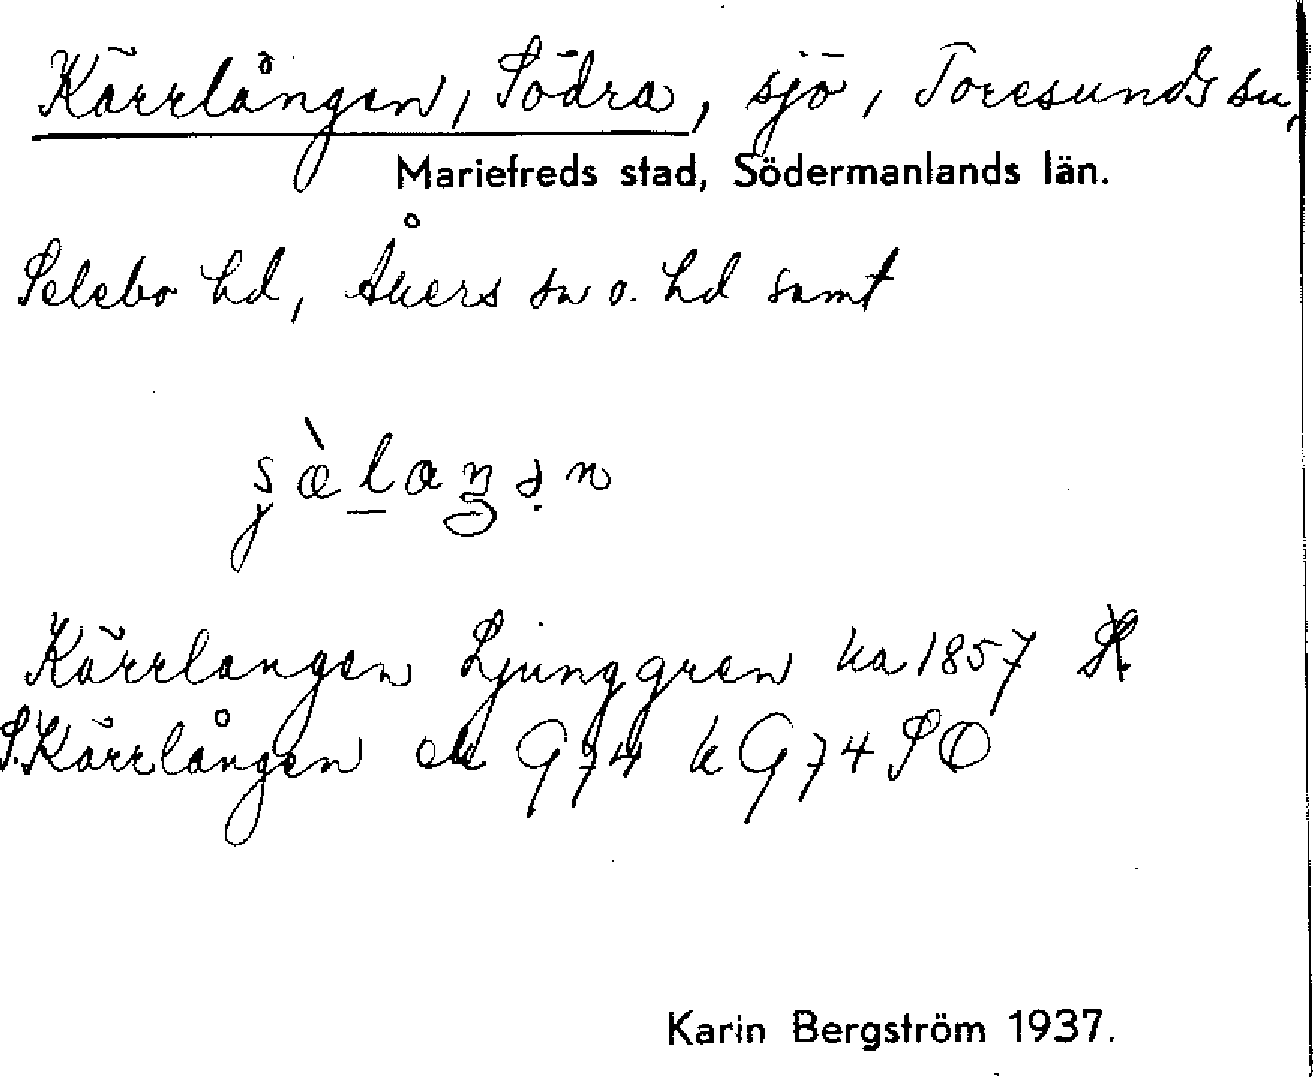 Kärrlången, Södra, sjö, Toresunds sn,
Mariefreds stad, Södermanlands län.
Selebo hd, Åkers sn o. hd samt
Kärrlangen Ljunggren ka 1857
S. Kärrlången ek G74 k G74 SO
Karin Bergström 1937.